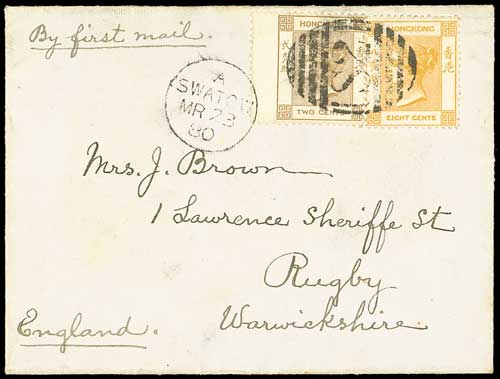 By first mail.
HONGKONG
HONGKONG
香港
TWO CENTS
EIGHT CENTS
A
SWATOW
MR 23
80
Mrs. J. Brown
1 Lawrence Sheriffe St
Rugby
Warwickshire.
England.